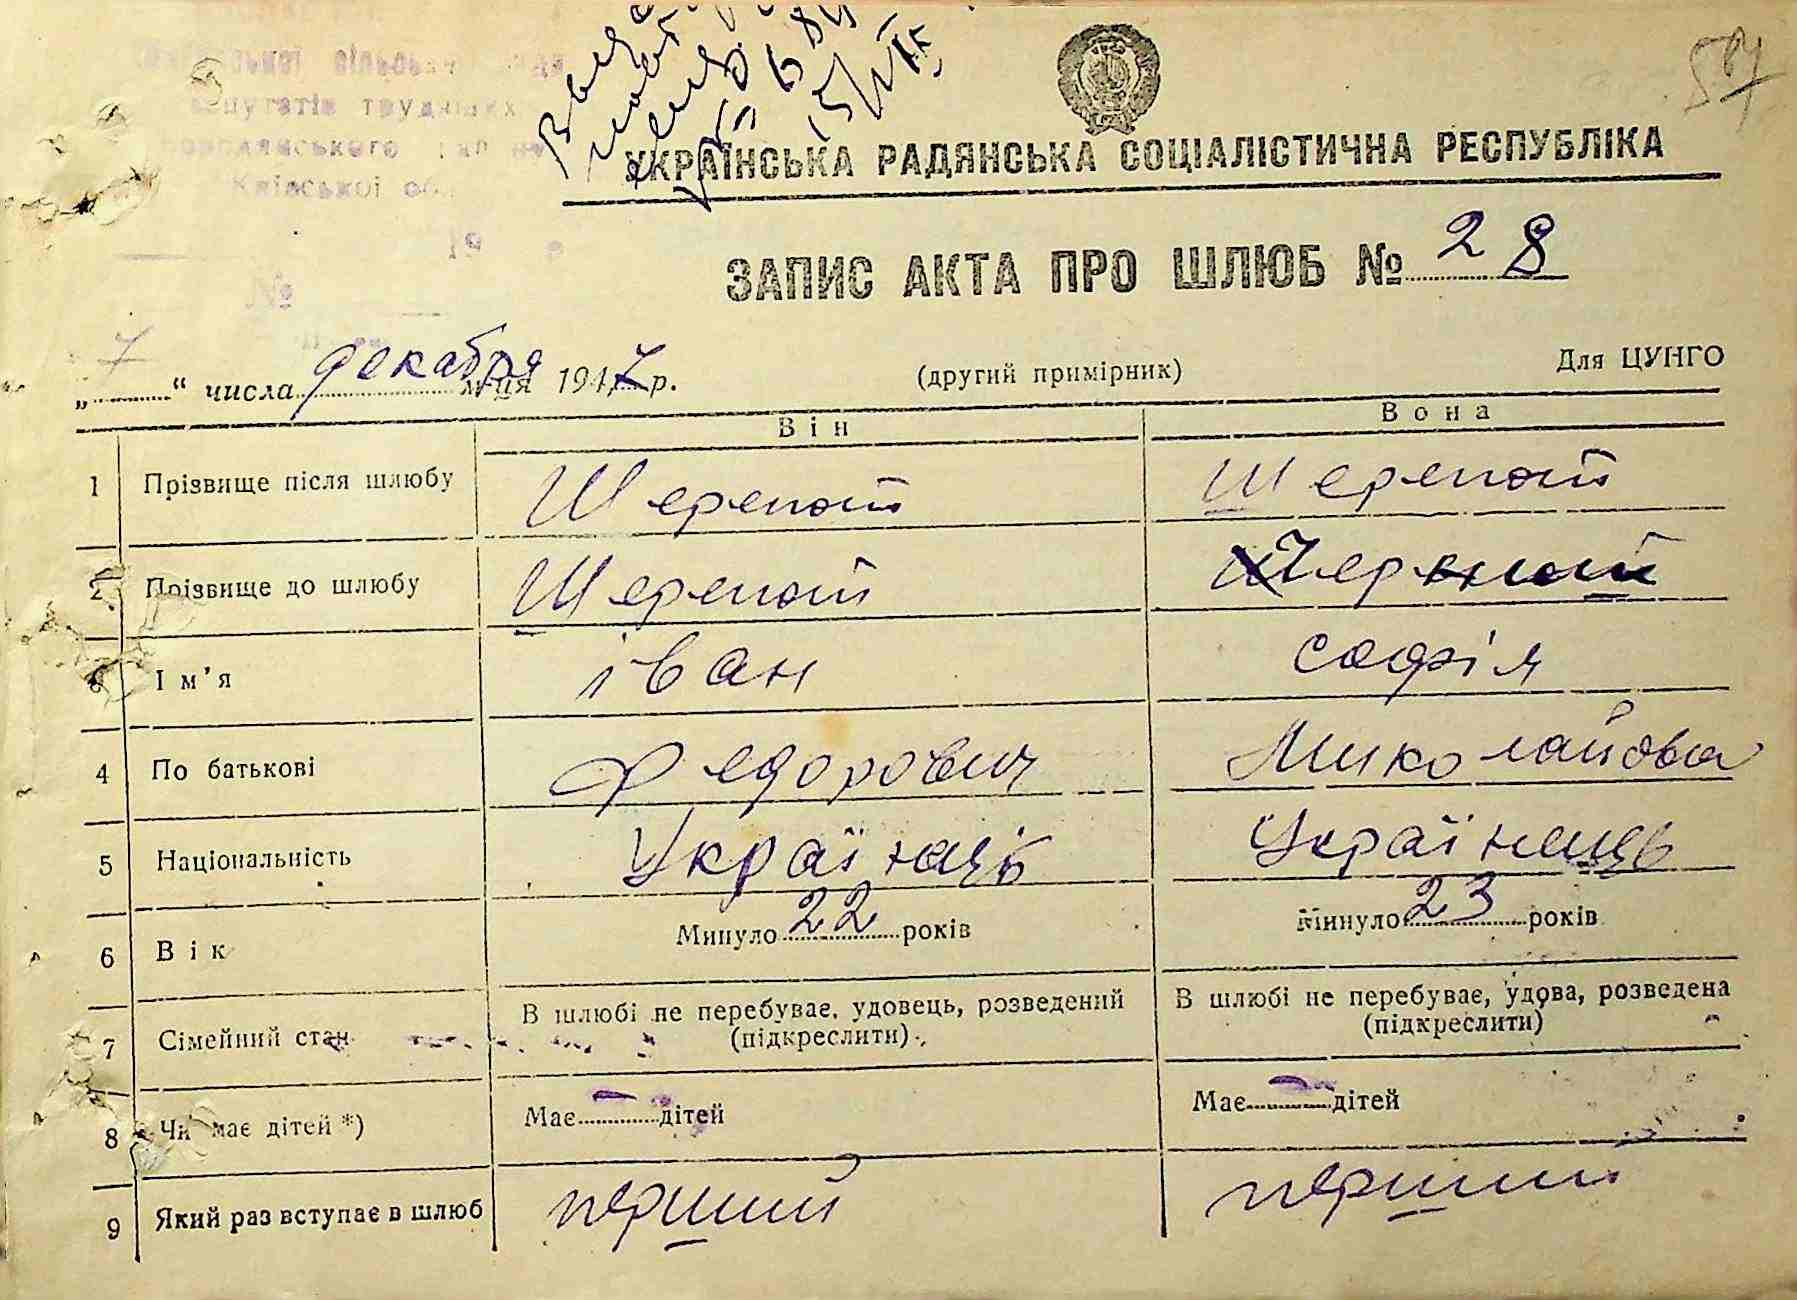 депутатів трудящих
Київської об
19
№
59
УКРАЇНСЬКА РАДЯНСЬКА СОЦІАЛІСТИЧНА РЕСПУБЛІКА
ЗАПИС АКТА ПРО ШЛЮБ № 28
„ 7 “ числа декабря м-ця 1947 р.
(другий примірник)
Для ЦУНГО
Він
Вона
1 Прізвище після шлюбу Шерепот Шерепот
2 Прізвище до шлюбу Шерепот
3 Ім’я іван софія
4 По батькові Федорович Миколайовна
5 Національність Українець Українець
6 Вік Минуло 22 років Минуло 23 років
7 Сімейний стан В шлюбі не перебуває, удовець, розведений (підкреслити) В шлюбі не перебуває, удова, розведена (підкреслити)
8 Чи має дітей *) Має — дітей Має — дітей
9 Який раз вступає в шлюб перший перший